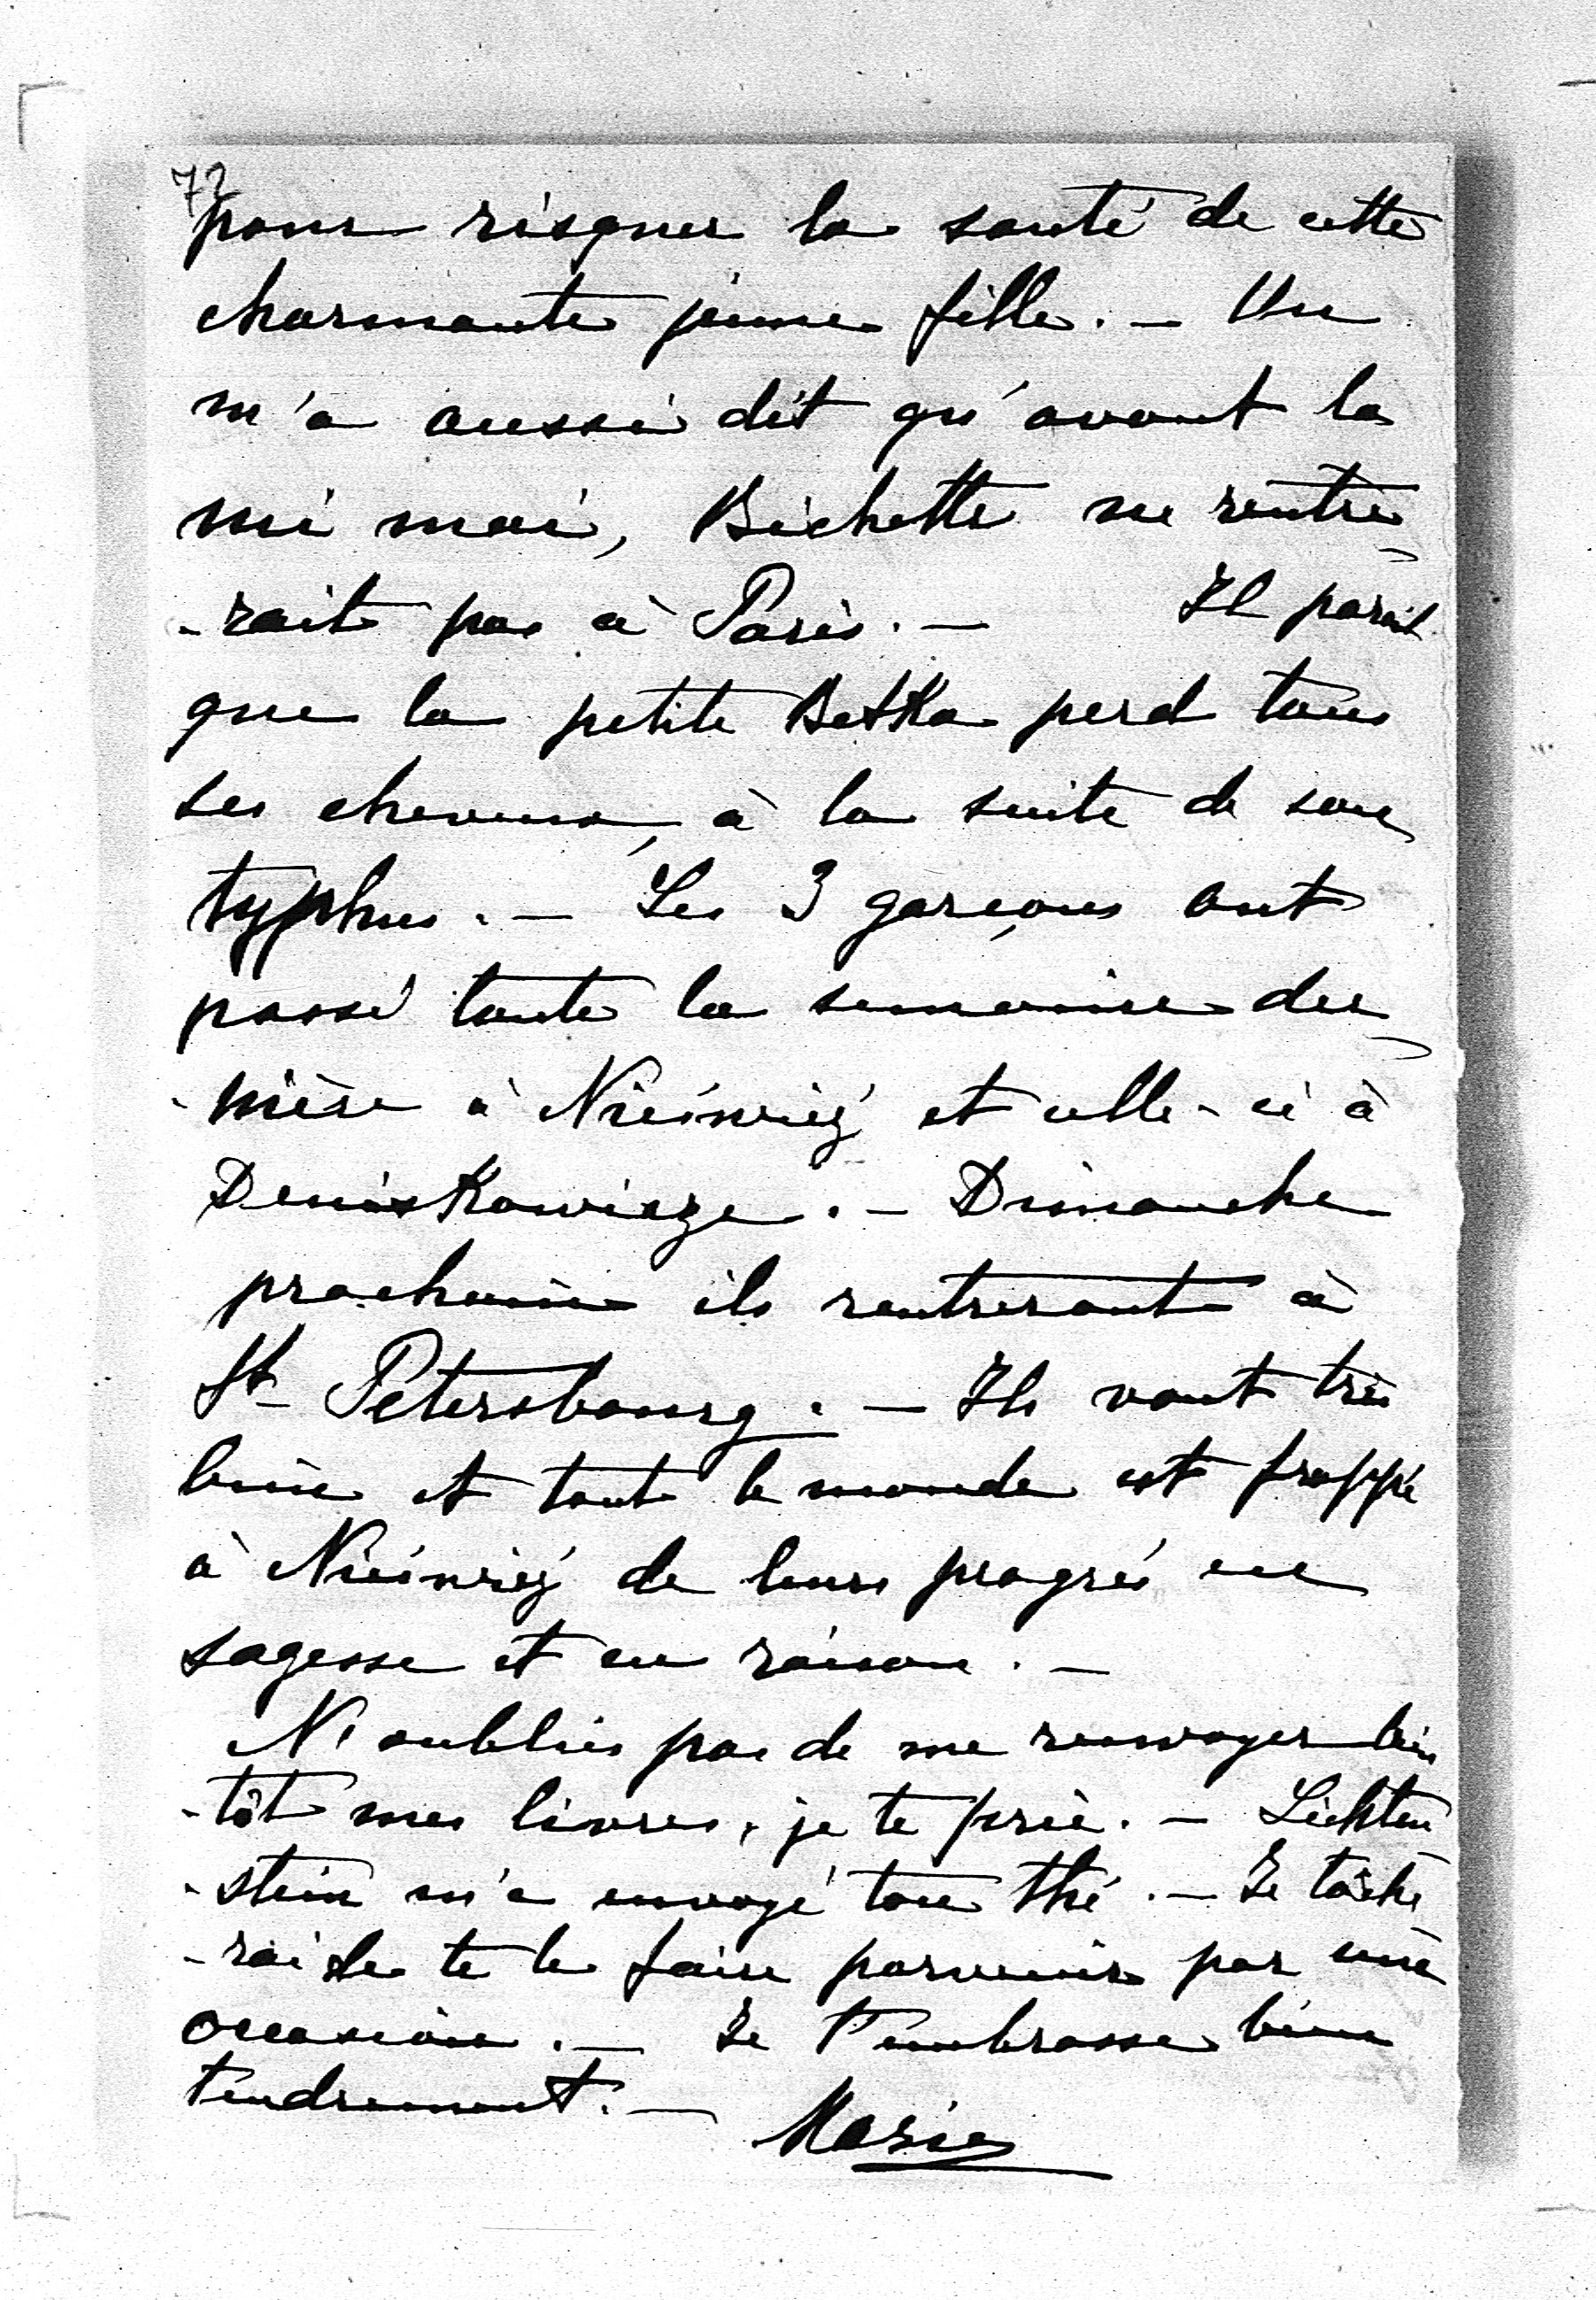 73
pour risquer la santé de cette
charmante jeune fille. — On
m'a aussi dit qu'avant la
mi mai, Bichette ne rentre-
-rait pas à Paris. — Il parait
que la petite Betka perd tous
ses cheveux, à la suite de son
typhus. — Les 3 garçons ont
passé toute la semaine der-
-nière à Nieśwież et celle-ci à
Deniskowicze. — Dimanche
prochain ils rentreront à
St Petersbourg. — Ils vont très
bien et tout le monde est frappé
à Nieśwież de leurs progrés en
sagesse et en raison. —
N'oublies pas de me renvoyer bien
-tôt mes livres, je te prie. — Lichten
-stein m'a envoyé ton thé. — Je tâche
-rai de te le faire parvenir par une
occasion. — Je t'embrasse bien
tendrement. — Marie